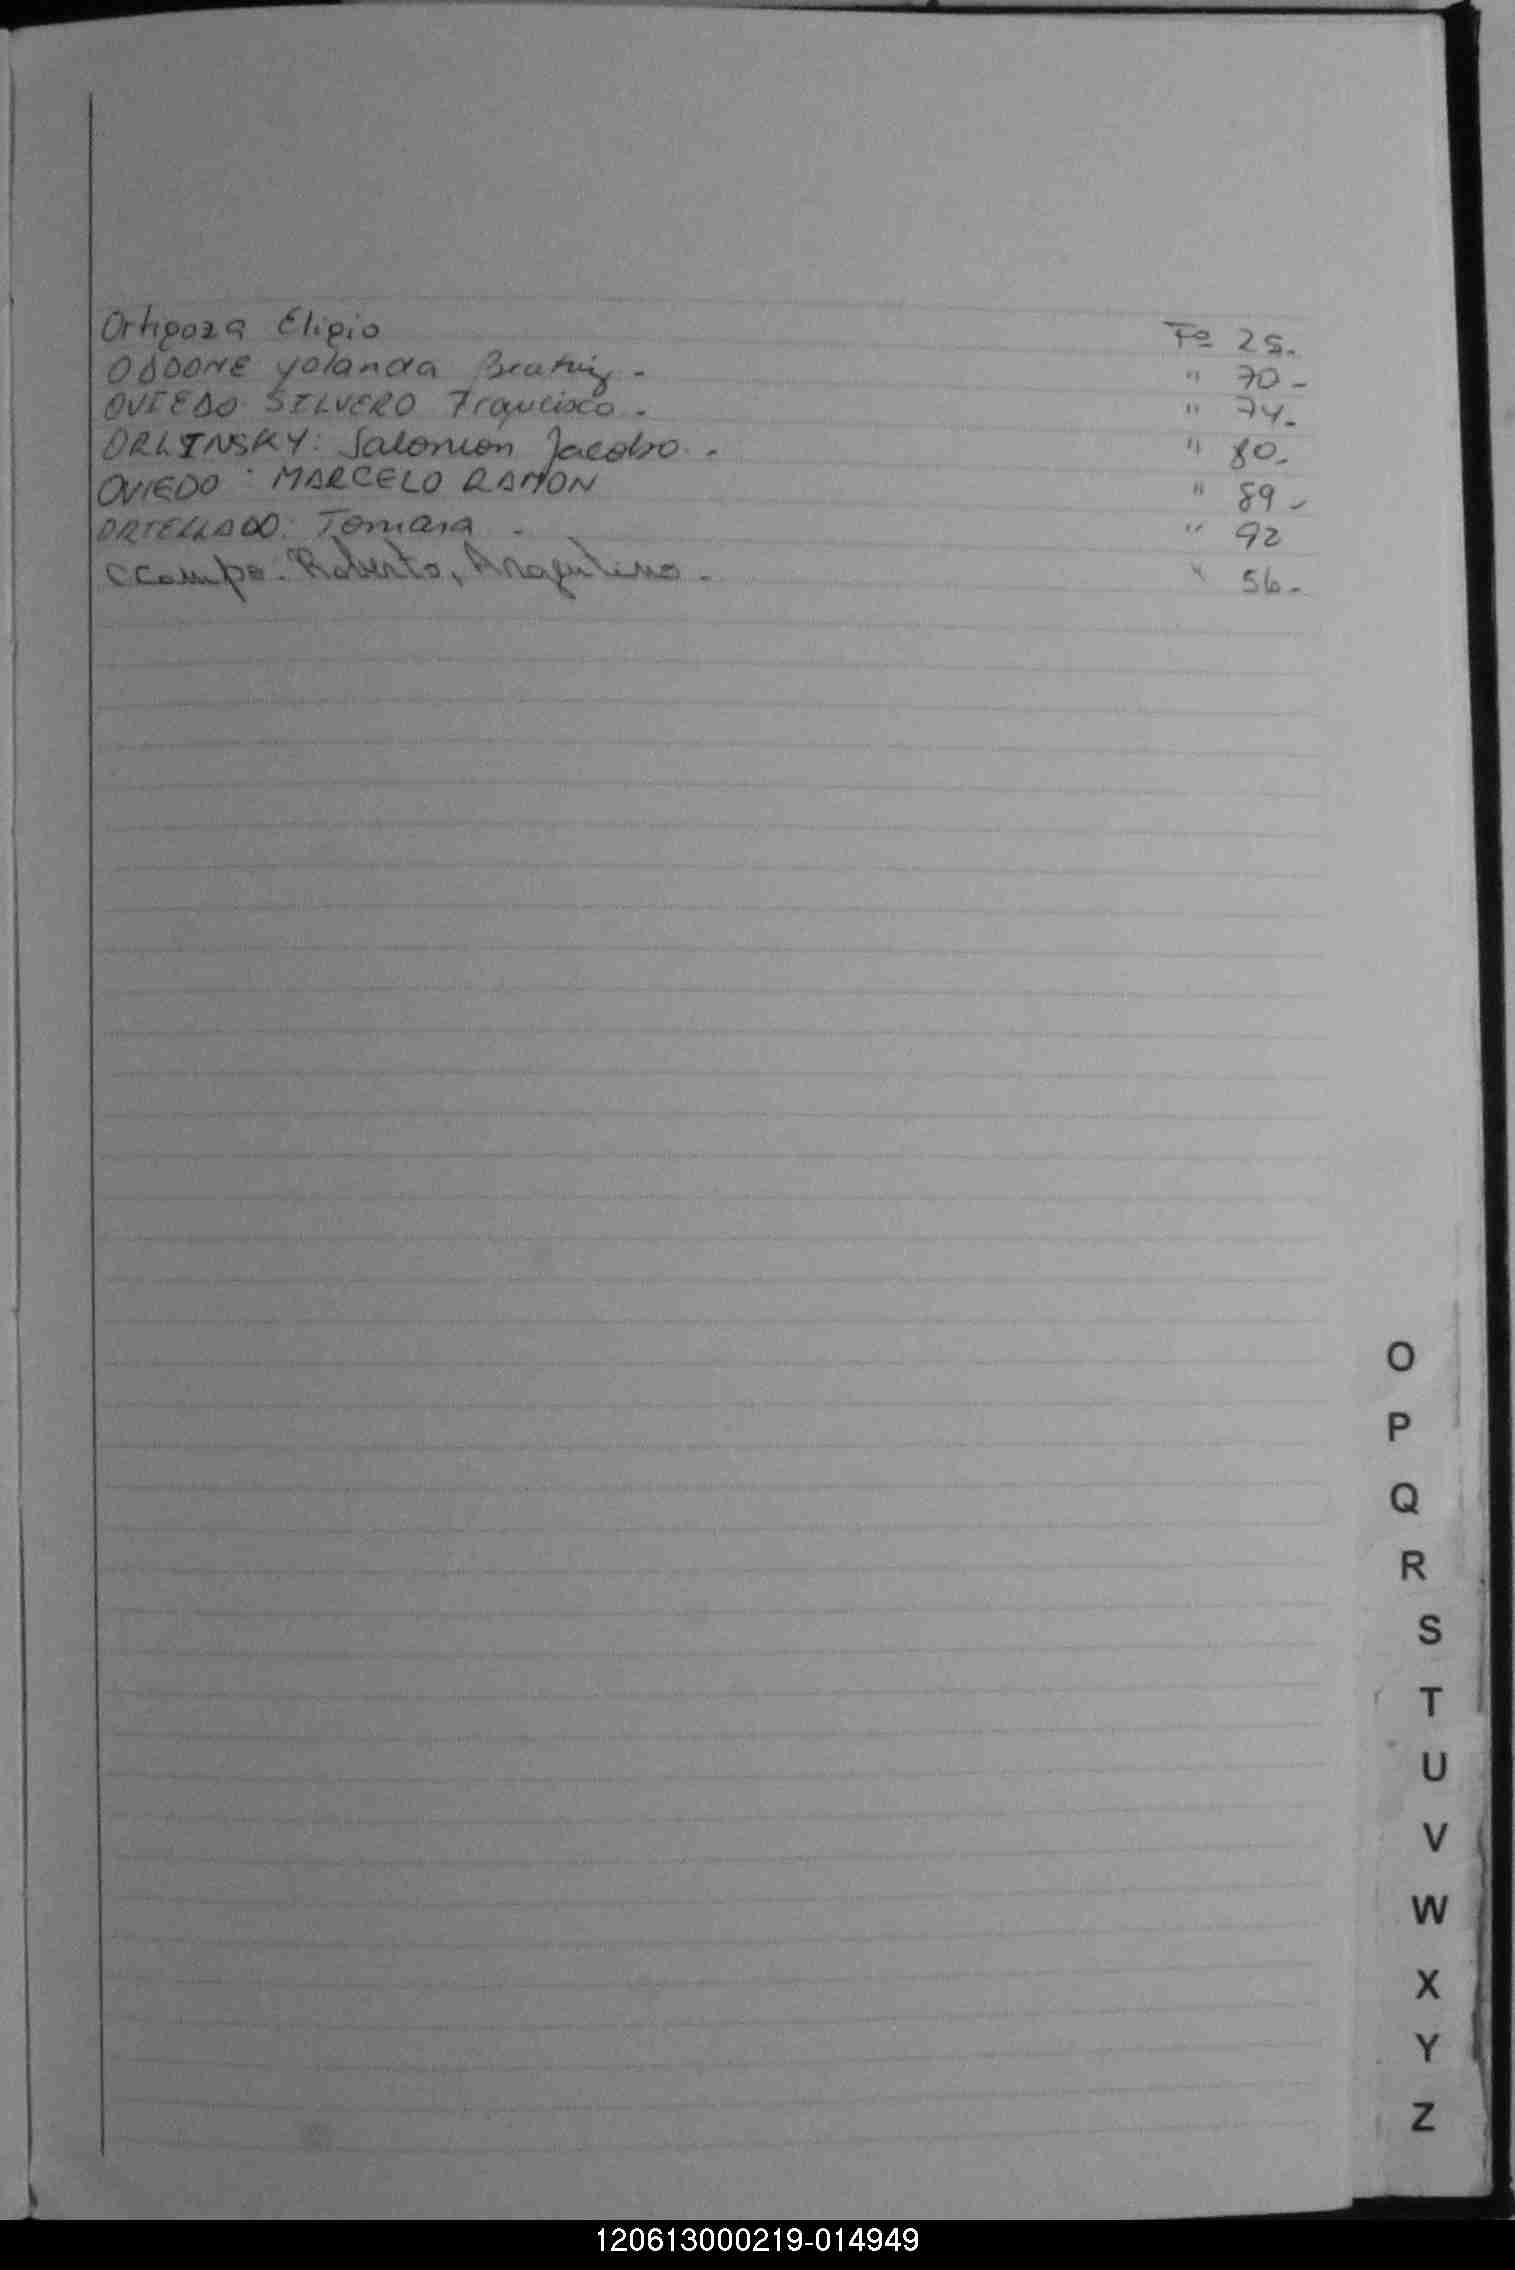 Ortigoza Eligio Fº 25.-
ODDONE Yolanda Beatriz.- " 70.-
OVIEDO SILVERO Francisco.- " 74.-
ORLINSKY: Salomon Jacobo.- " 80.-
OVIEDO: MARCELO RAMON " 89.-
ORTELLADO: Tomasa.- " 92
Roberto, " 56.-
O
P
Q
R
S
T
U
V
W
X
Y
Z
120613000219-014949